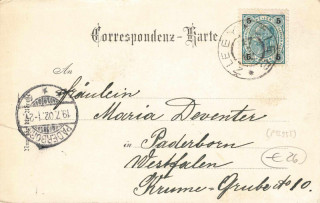 Correspondenz-Karte.
5 5
5 5
An
Fräulein
Maria Deventer
in Paderborn
Westfalen
Krume-Grube No 10.
PADERBORN
19.7.02.1-2
€ 26